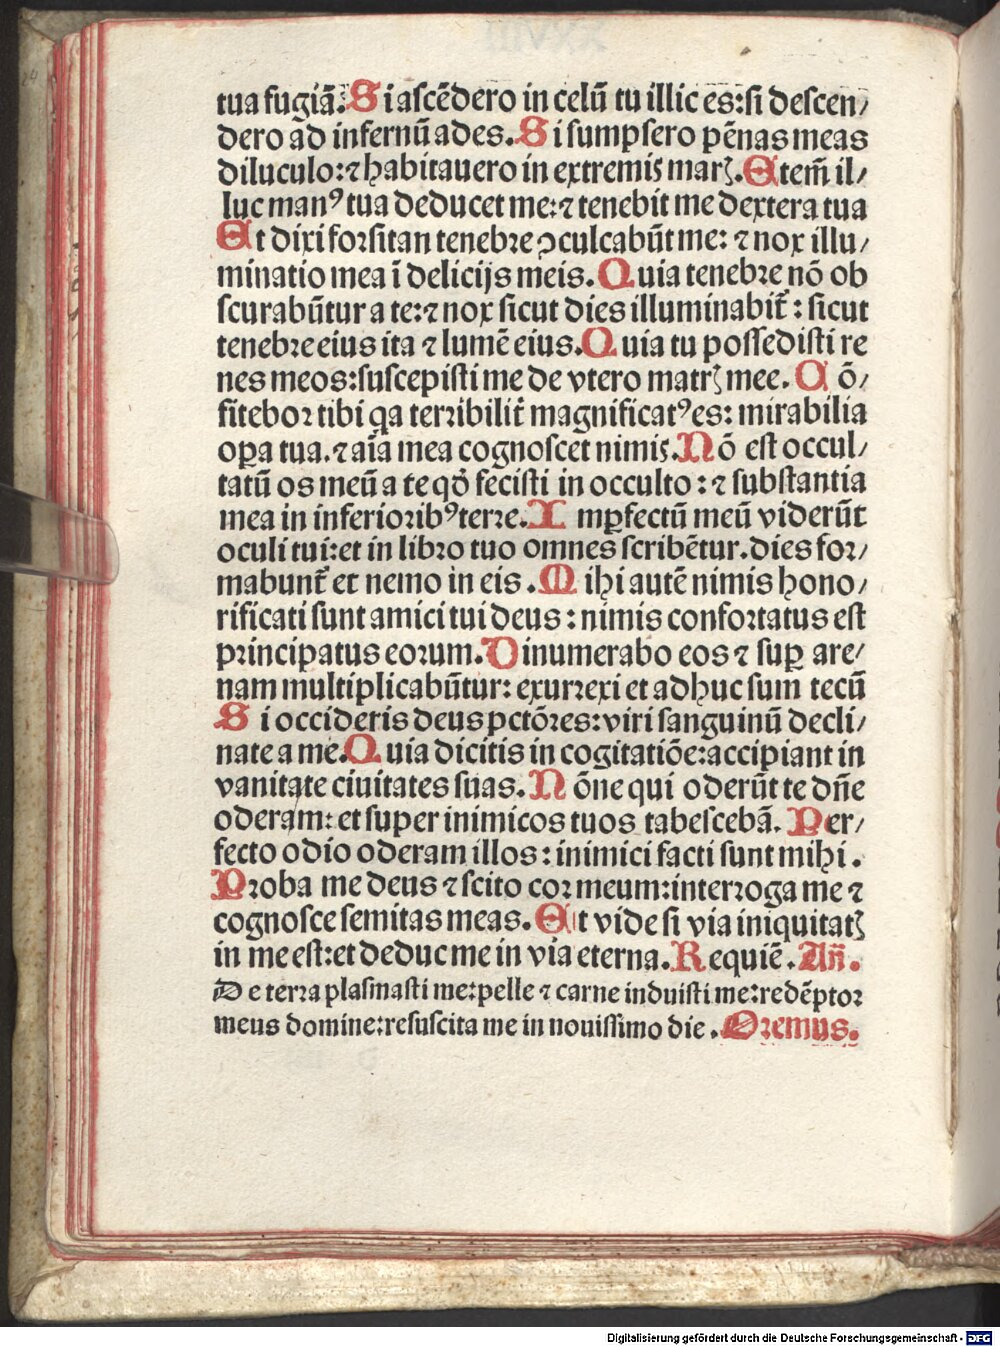 tua fugiā: Si ascēdero in celū tu illic es: si descen/
dero ad infernū ades. Si sumpsero pēnas meas
diluculo: ⁊ habitauero in extremis marꝭ. Etem̄ il/
luc manꝰ tua deducet me: ⁊ tenebit me dextera tua
Et dixi forsitan tenebre ꝯculcabūt me: ⁊ nox illu/
minatio mea ī delicijs meis. Quia tenebre nō ob
scurabūtur a te: ⁊ nox sicut dies illuminabit̄: sicut
tenebre eius ita ⁊ lumē eius. Quia tu possedisti re
nes meos: suscepisti me de vtero matrꝭ mee. Cō/
fitebor tibi qa terribilit̄ magnificatꝰ es: mirabilia
oꝑa tua. ⁊ aīa mea cognoscet nimis. Nō est occul/
tatū os meū a te qð fecisti in occulto: ⁊ substantia
mea in inferioribꝰ terre. Imꝑfectū meū viderūt
oculi tui: et in libro tuo omnes scribētur. dies for/
mabunt̄ et nemo in eis. Mihi autē nimis hono/
rificati sunt amici tui deus: nimis confortatus est
principatus eorum. Dinumerabo eos ⁊ suꝑ are/
nam multiplicabūtur: exurrexi et adhuc sum tecū
Si occideris deus pctōres: viri sanguinū decli/
nate a me. Quia dicitis in cogitatiōe: accipiant in
vanitate ciuitates suas. Nōne qui oderūt te dn̄e
oderam: et super inimicos tuos tabescebā. Per/
fecto odio oderam illos: inimici facti sunt mihi.
Proba me deus ⁊ scito cor meum: interroga me ⁊
cognosce semitas meas. Et vide si via iniquitatꝭ
in me est: et deduc me in via eterna. Requiē. Añ.
De terra plasmasti me: pelle ⁊ carne induisti me: redēptor
meus domine: resuscita me in nouissimo die. Oremus.
Digitalisierung gefördert durch die Deutsche Forschungsgemeinschaft - DFG